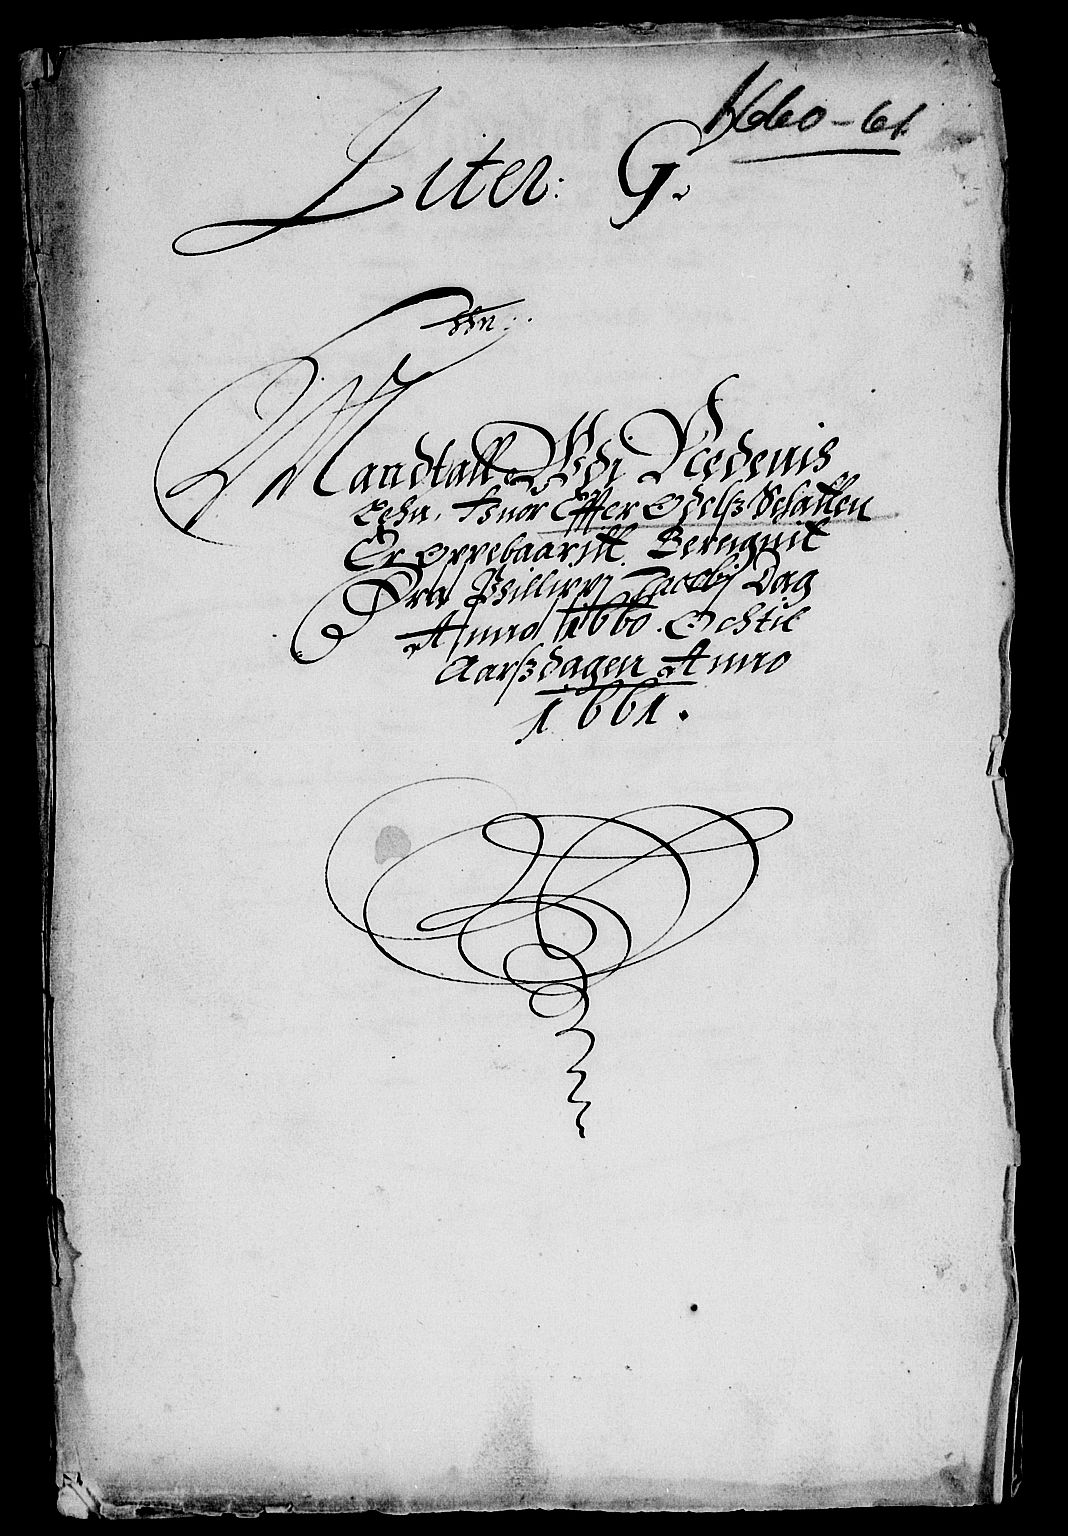 1660-61.
Liter: G.
Mandtall Udj Nedenis
Lehn, huor Effter Odelsz Schatten
Er Oppebaaritt. Beregnit
Fra Phillippi Jacobj Dag
Anno 1660. Och til
Aarszdagen Anno
1661.